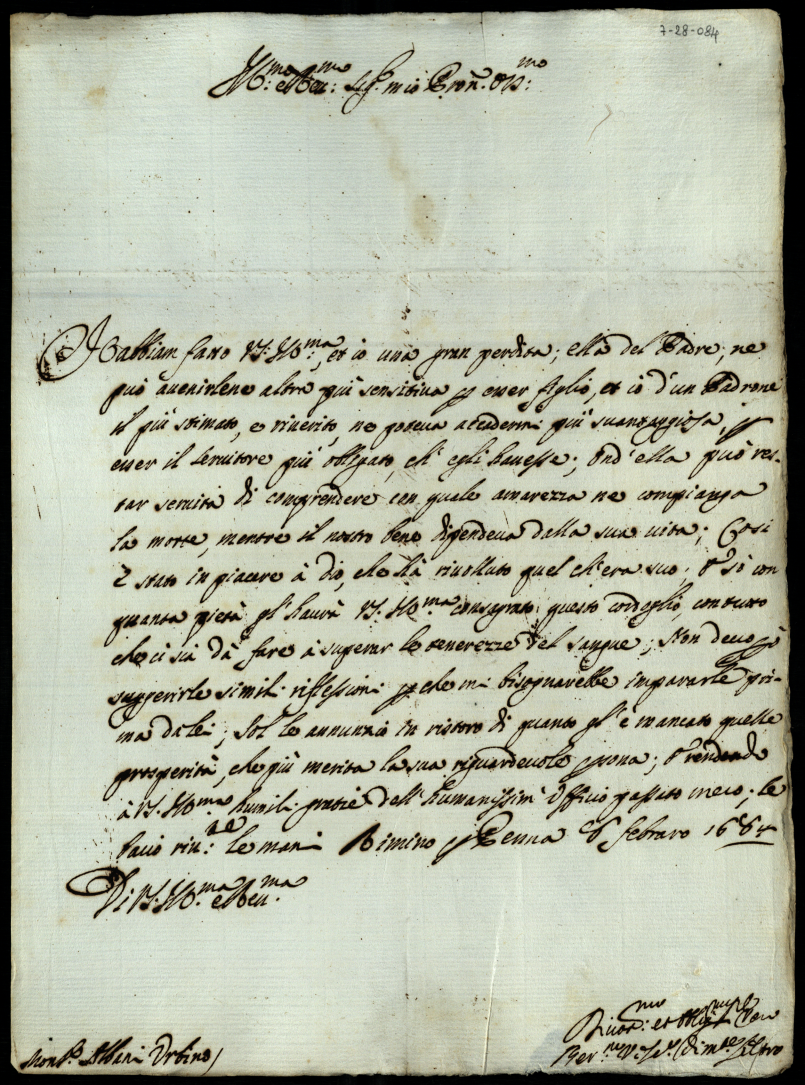 7-28-084
Ill:mo e Reu:mo Sig:r mio Pron: Oss:mo
Habbiam fatto V.S. Ill:ma, et io una gran perdita; ella del Padre, ne
può auenirlene altra più sensitiua p esser figlio, et io d'un Padrone
il più stimato, e riuerito, ne poteua accadermi più suantaggiosa, p
esser il seruitore più obligato, ch'egli hauesse; Ond'ella può res-
tar seruita di comprendere con quale amarezza ne compianga
la morte, mentre il nostro bene dipendeua dalla sua uita; Così
è stato in piacere à Dio, che hà riuoluto quel ch'era suo; Et sò con
quanta pietà gl'haurà V.S. Ill:ma consegrato questo cordoglio, con tutto
che ci sia dà fare à superar le tenerezze del sangue; Non deuo pò
suggerirle simili riflessioni p che mi bisognarebbe impararle pri-
ma da lei; Sol' le annunzio in ristoro di quanto gl'è mancato quelle
prosperità, che più merita la sua riguardeuole psona; Et rendendo
à V.S. Ill:ma humili gratie dell'humanissimi Officij passato meco, le
bacio riu:te le mani Rimino p Penna 6 febraro 1684
Di V.S. Ill:ma e Reu:ma
Mons:r Albani Urbino
Diuot:mo et